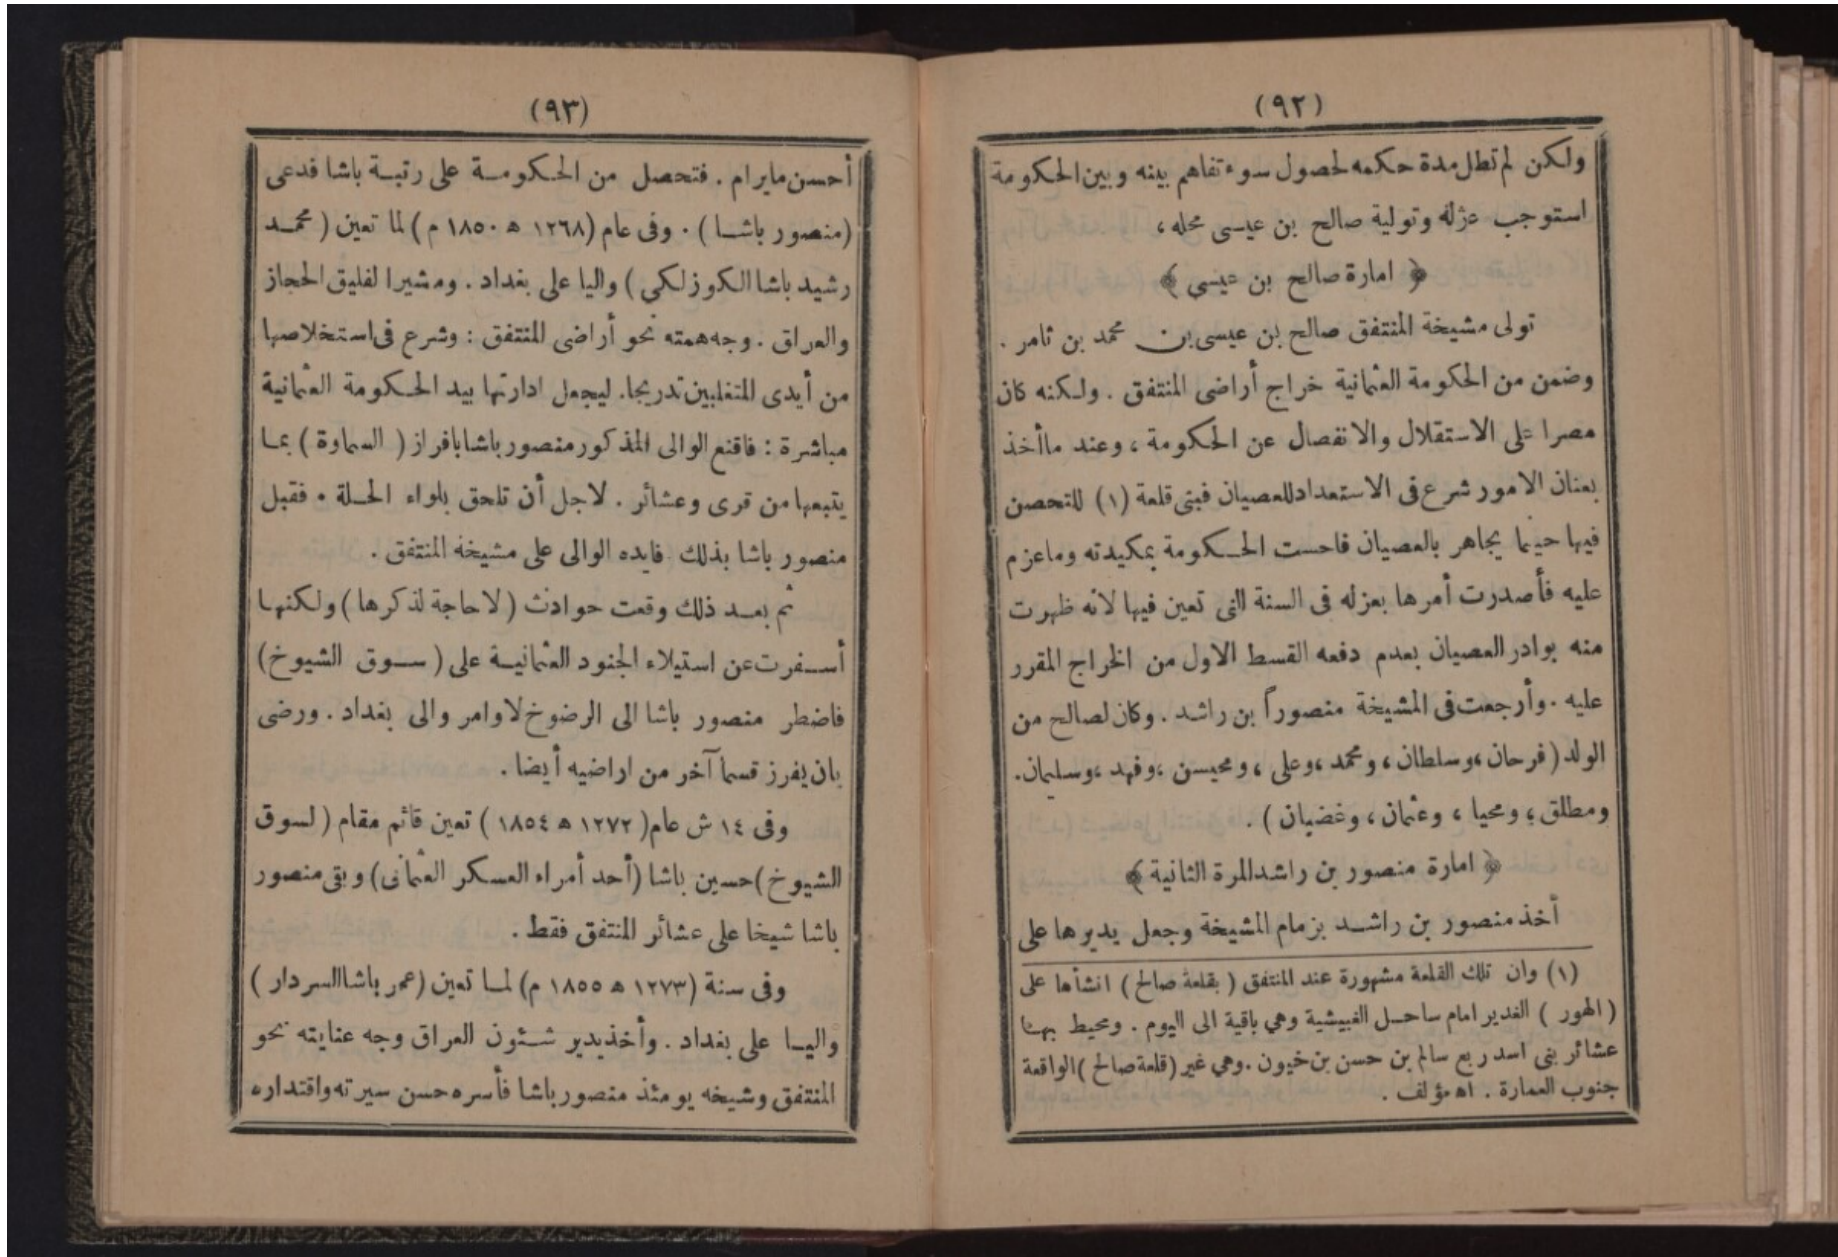 (٩٢)
ولكن لم تطل مدة حكمه لحصول سوء تفاهم بينه وبين الحكومة
استوجب عزله وتولية صالح بن عيسى محله ،
﴿ امارة صالح بن عيسى ﴾
تولى مشيخة المنتفق صالح بن عيسى بن محمد بن ثامر .
وضمن من الحكومة العثمانية خراج أراضى المنتفق . ولكنه كان
مصرا على الاستقلال والانفصال عن الحكومة ، وعند ماأخذ
بعنان الامور شرع فى الاستعداد للعصيان فبنى قلعة (١) للتحصن
فيها حينما يجاهر بالعصيان فاحست الحكومة بمكيدته وماعزم
عليه فأصدرت أمرها بعزله فى السنة التى تعين فيها لانه ظهرت
منه بوادر العصيان بعدم دفعه القسط الاول من الخراج المقرر
عليه . وأرجعت فى المشيخة منصوراً بن راشد . وكان لصالح من
الولد ( فرحان ، وسلطان ، ومحمد ، وعلى ، ومحيسن ، وفهد ، وسليمان .
ومطلق ، ومحيا ، وعثمان ، وغضبان ) .
﴿ امارة منصور بن راشد للمرة الثانية ﴾
أخذ منصور بن راشد بزمام المشيخة وجعل يديرها على
(١) وان تلك القلعة مشهورة عند المنتفق ( بقلعة صالح ) انشأها على
( الهور ) الغدير امام ساحل الغبيشية وهي باقية الى اليوم . ومحيط بها
عشائر بنى اسد ربع سالم بن حسن بن خيون . وهي غير ( قلعة صالح ) الواقعة
جنوب العمارة . اه مؤلف .
(٩٣)
أحسن مايرام . فتحصل من الحكومة على رتبة باشا فدعى
(منصور باشا ) . وفى عام (١٢٦٨ ه ١٨٥٠ م ) لما تعين ( محمد
رشيد باشا الكوزلكي ) واليا على بغداد . ومشيرا لفليق الحجاز
والعراق . وجه همته نحو أراضى المنتفق : وشرع فى استخلاصها
من أيدى المتغلبين تدريجا . ليجعل ادارتها بيد الحكومة العثمانية
مباشرة : فاقنع الوالى المذكور منصور باشا بافراز ( السماوة ) بما
يتبعها من قرى وعشائر . لاجل أن تلحق بلواء الحلة . فقبل
منصور باشا بذلك فايده الوالى على مشيخة المنتفق .
ثم بعد ذلك وقعت حوادث ( لا حاجة لذكرها ) ولكنها
أسفرت عن استيلاء الجنود العثمانية على ( سوق الشيوخ )
فاضطر منصور باشا الى الرضوخ لاوامر والى بغداد . ورضى
بان يفرز قسماً آخر من اراضيه أيضا .
وفى ١٤ ش عام ( ١٢٧٢ ه ١٨٥٤ ) تعين قائم مقام ( لسوق
الشيوخ ) حسين باشا (أحد أمراء العسكر العثمانى) وبقى منصور
باشا شيخا على عشائر المنتفق فقط .
وفى سنة (١٢٧٣ ه ١٨٥٥ م) لما تعين (عمر باشا السردار )
واليا على بغداد . وأخذ يدير شئون العراق وجه عنايته نحو
المنتفق وشيخه يومئذ منصور باشا فأسره حسن سيرته واقتداره